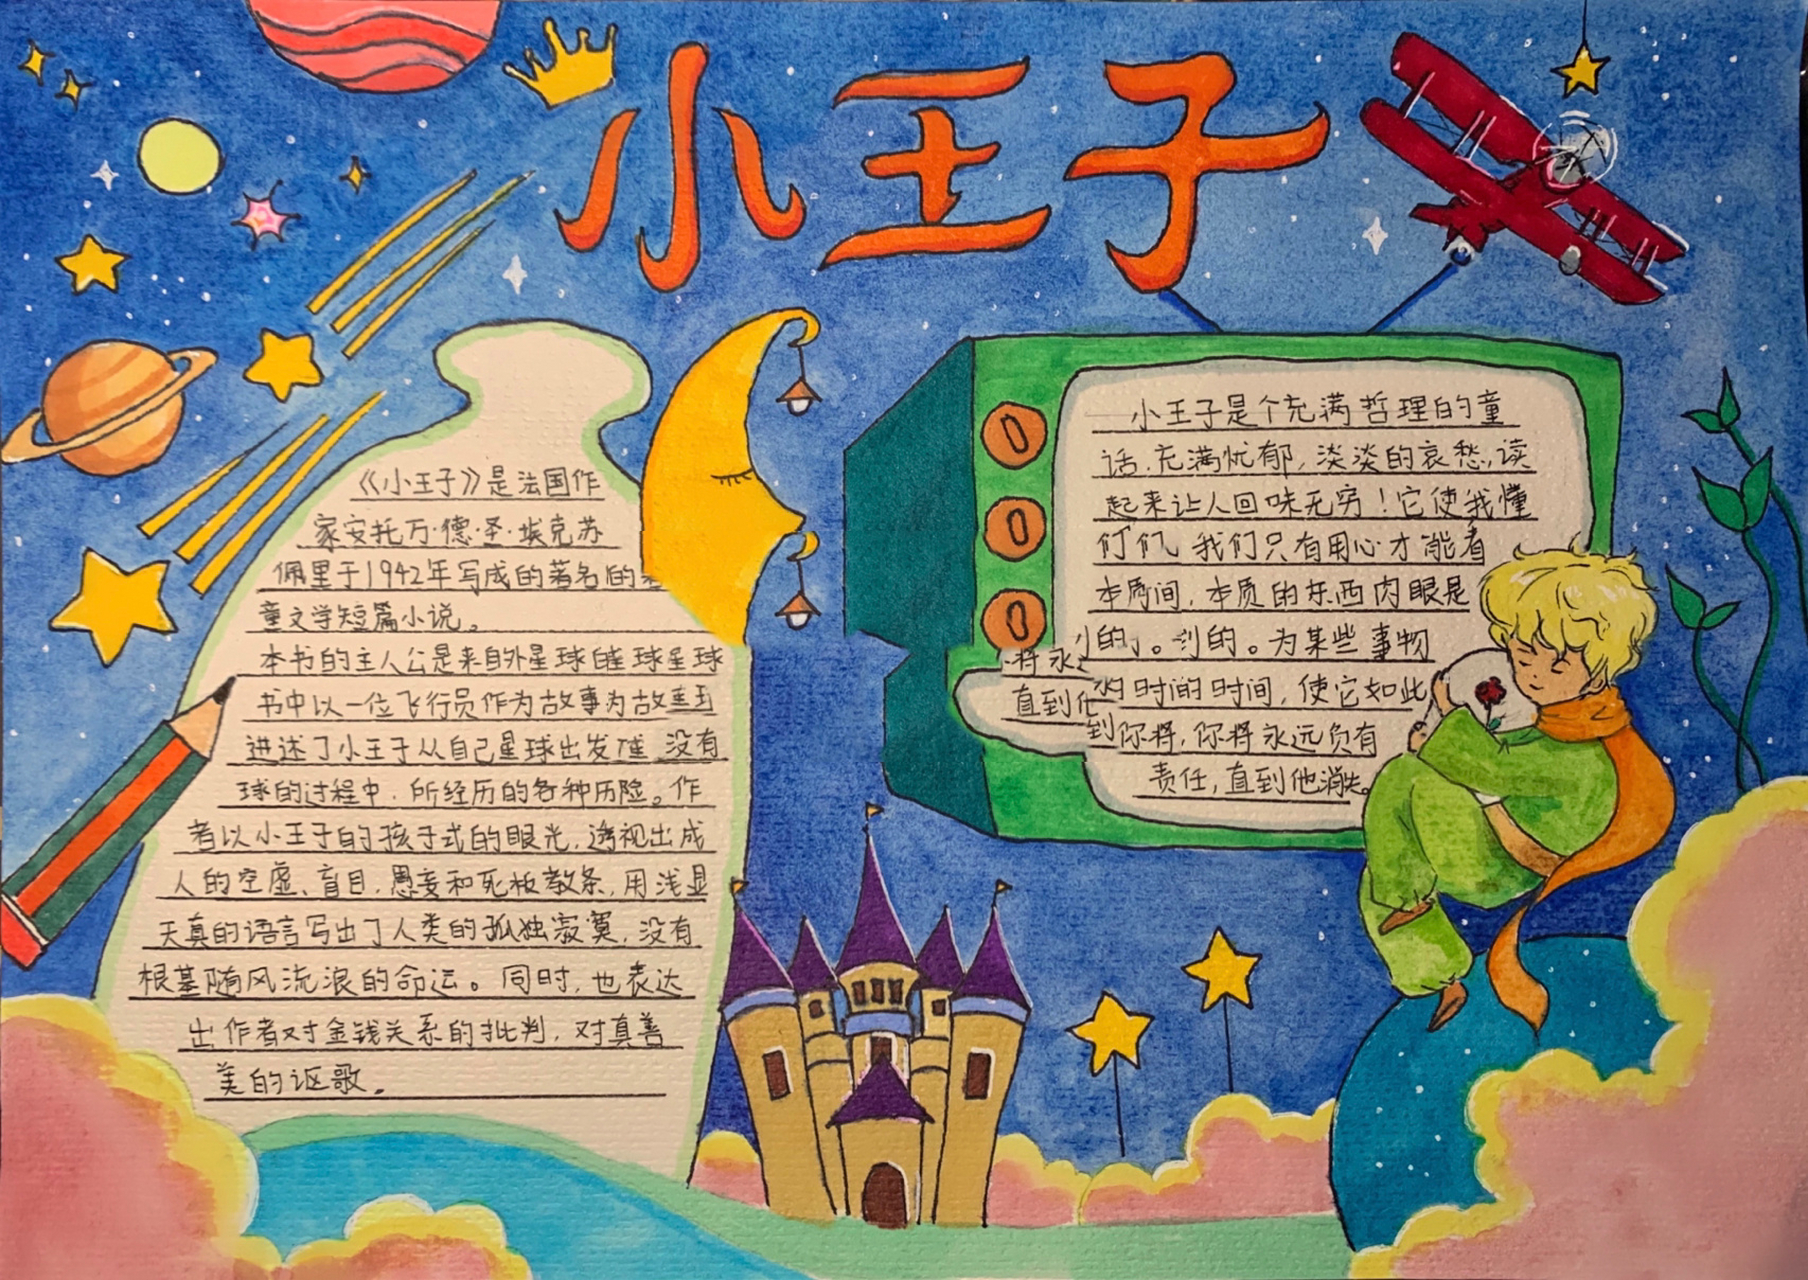 小王子
《小王子》是法国作
家安托万·德·圣·埃克苏
佩里于1942年写成的著名的
童文学短篇小说。
本书的主人公是来自外星球的 球星球
书中以一位飞行员作为故事为故
讲述了小王子从自己星球出发 没有
球的过程中，所经历的各种历险。作
者以小王子的孩子式的眼光，透视出成
人的空虚、盲目，愚妄和死板教条，用浅显
天真的语言写出了人类的孤独寂寞，没有
根基随风流浪的命运。同时，也表达
出作者对金钱关系的批判，对真善
美的讴歌。
小王子是个充满哲理的童
话，充满忧郁，淡淡的哀愁，读
起来让人回味无穷！它使我懂
们，我们只有用心才能看
本质间，本质的东西肉眼是
的。 的。为某些事物
将永
的时间时间，使它如此
直到他
到你将，你将永远负有
责任，直到他消失。